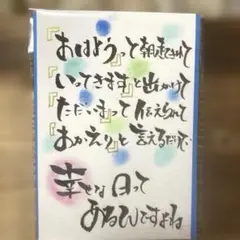 「おはよう」って朝起きれて
「いってきます」と出かけて
「ただいま」って伝えられて
「おかえり」と言えるだけで
幸せな日って
あるんですよね